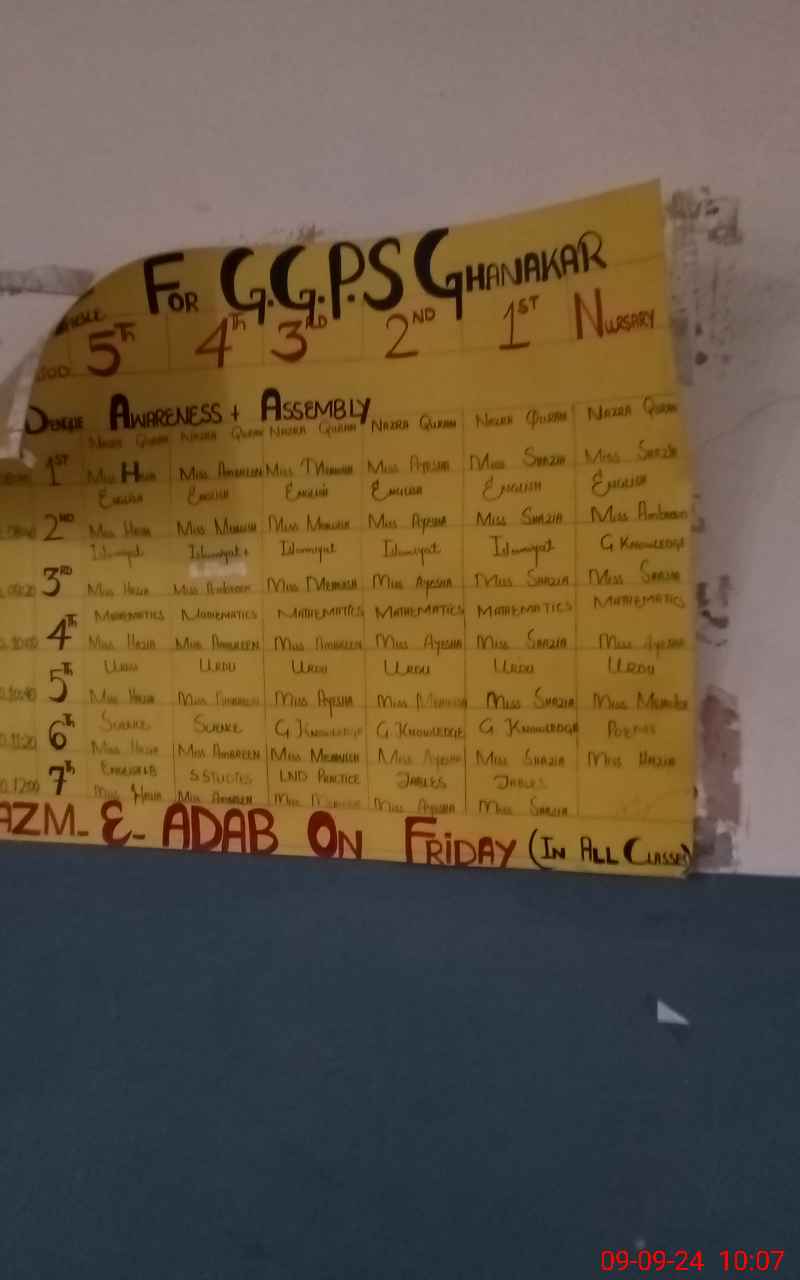 FOR G.G.P.S GHANAKAR
5TH 4TH 3RD 2ND 1ST NURSARY
DENGUE AWARENESS + ASSEMBLY
NAZRA QURAN NAZRA QURAN NAZRA QURAN NAZRA QURAN NAZRA QURAN NAZRA QURAN
1ST MISS AMBREEN MISS AYESHA MISS SHAZIA MISS SHAZIA
ENGLISH ENGLISH ENGLISH ENGLISH ENGLISH ENGLISH
2ND MISS MISS MISS MISS AYESHA MISS SHAZIA MISS AMBREEN
Islamiyat Islamiyat+ Islamiyat Islamiyat Islamiyat G KNOWLEDGE
3RD MISS MISS AMBREEN MISS MISS AYESHA MISS SHAZIA MISS SHAZIA
MATHEMATICS MATHEMATICS MATHEMATICS MATHEMATICS MATHEMATICS MATHEMATICS
4TH MISS MISS AMBREEN MISS AMBREEN MISS AYESHA MISS SHAZIA MISS AYESHA
URDU URDU URDU URDU URDU URDU
5TH MISS MISS AMBREEN MISS AYESHA MISS MISS SHAZIA MISS
SCIENCE SCIENCE G KNOWLEDGE G KNOWLEDGE G KNOWLEDGE POEMS
6TH MISS MISS AMBREEN MISS MISS AYESHA MISS SHAZIA MISS
S.STUDIES LND PRACTICE TABLES TABLES
7TH MISS MISS AMBREEN MISS MISS AYESHA MISS SHAZIA
AZM-E-ADAB ON FRIDAY (IN ALL CLASSES)
09-09-24 10:07